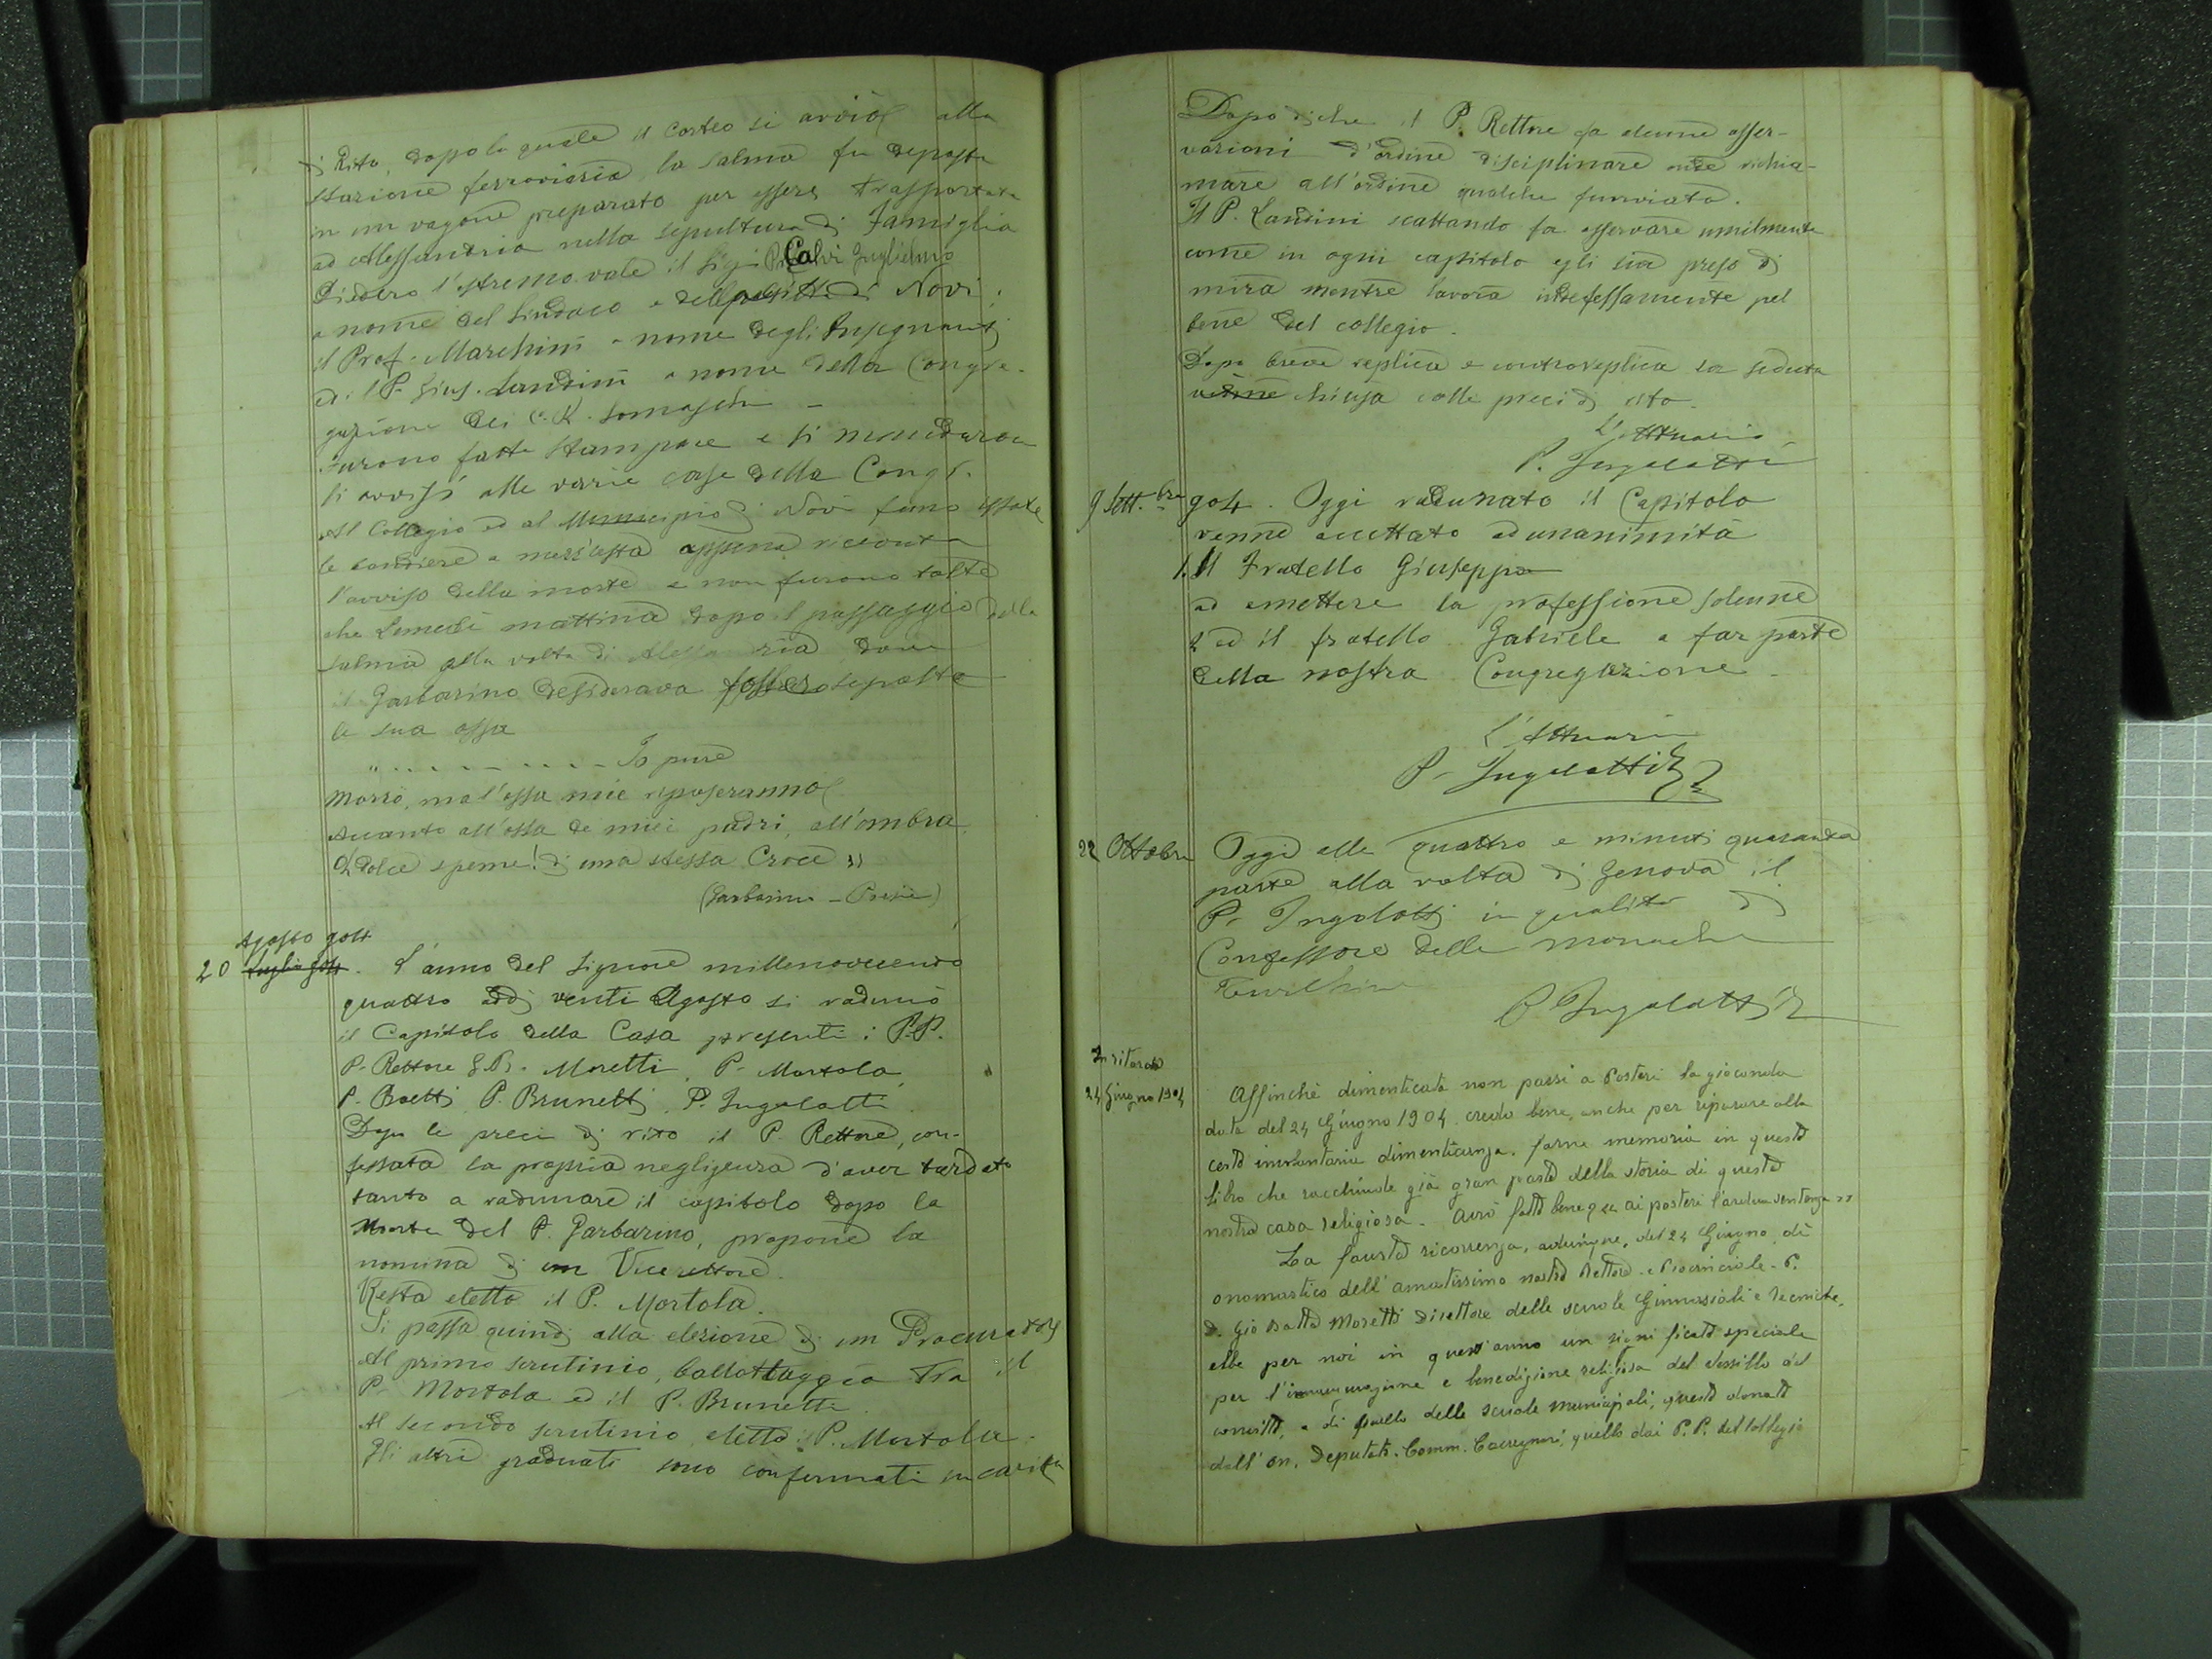 di Rito, dopo la quale il corteo si avviò alla
stazione ferroviaria, la salma fu deposta
in un vagone preparato per essere trasportata
ad Alessandria nella sepultura di Famiglia
Diedero l'estremo vale il Sig. Calvi Guglielmo
a nome del Sindaco e della di Novi;
il Prof. Marchini a nome degli Insegnanti
ed il P. Gius. Landini a nome della Congre-
gazione dei C. R. Somaschi -
Furono fatte stampare e si mandarono
li avvisi alle varie case della Congr.
Al Collegio ed al Municipio di Novi furno issate
le bandiere a mezz'asta appena ricevuto
l'avviso della morte e non furono tolte
che Lunedì mattina dopo il passaggio della
salma alla volta di Alessandria dove
il Garbarino desiderava fossero sepolte
le sue ossa
" . . . . . . . . . . Io pure
Morrò, ma l'ossa mie riposeranno
Accanto all'ossa de miei padri, all'ombra
O dolce speme! di una stessa Croce "
(Garbarino - Poesie)
Agosto 904
20 Luglio 904. L'anno del Signore millenovecento
quattro addì venti Agosto si radunò
il Capitolo della Casa presenti i P.P.
P. Rettore G.B. Moretti, P. Mortola,
P. Boetti, P. Brunetti, P. Ingolotti.
Dopo le preci di rito il P. Rettore, con-
fessata la propria negligenza d'aver tardato
tanto a radunare il capitolo dopo la
Morte del P. Garbarino, propone la
nomina di un Vicerettore.
Resta eletto il P. Mortola.
Si passa quindi alla elezione di un Procuratore
Al primo scrutinio, ballottaggio tra il
P. Mortola ed il P. Brunetti.
Al secondo scrutinio eletto il P. Mortola.
Gli altri graduati sono confermati in carica
Dopo di che il P. Rettore fa alcune osser-
vazioni d'ordine disciplinare onde richia-
mare all'ordine qualche fuorviato.
Il P. Landini scattando fa osservare umilmente
come in ogni capitolo egli sia preso di
mira mentre lavora indefessamente pel
bene del collegio.
Dopo breve replica e controreplica la seduta
viene chiusa colle preci di rito.
L'Attuario
P. Ingolotti
9 Sett.bre 904. Oggi radunato il Capitolo
venne accettato ad unanimità
1. Il Fratello Giuseppe
ad emettere la professione solenne
2 ed il fratello Gabriele a far parte
della nostra Congregazione.
L'Attuario
P. Ingolotti
22 Ottobre Oggi alle quattro e minuti quaranta
parte alla volta di Genova il
P. Ingolotti in qualità di
Confessore delle monache
Turchine
P. Ingolotti
In ritardo
24 Giugno 1904 Affinchè dimenticata non passi a Posteri la gioconda
data del 24 Giugno 1904 credo bene, anche per riparare alla
certo involontaria dimenticanza, farne memoria in questo
libro che racchiude già gran parte della storia di questa
nostra casa religiosa. Avrò fatto bene? " ai posteri l'ardua sentenza "
La fausta ricorrenza, adunque, del 24 Giugno, dì
onomastico dell'amatissimo nostro Rettore e Provinciale P.
D. Gio Batta Moretti Direttore delle scuole Ginnasiali e Tecniche,
ebbe per noi in quest'anno un significato speciale
per l'inaugurazione e benedizione religiosa del vessillo del
convitto, e di quello delle scuole municipali, questo donato
dall'On. Deputato Comm. quello dai P.P. del collegio